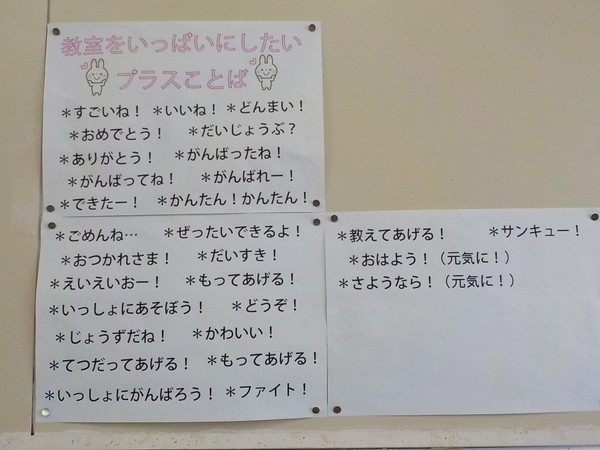 教室をいっぱいにしたい
プラスことば
＊すごいね！ ＊いいね！ ＊どんまい！
＊おめでとう！ ＊だいじょうぶ？
＊ありがとう！ ＊がんばったね！
＊がんばってね！ ＊がんばれー！
＊できたー！ ＊かんたん！かんたん！
＊ごめんね… ＊ぜったいできるよ！
＊おつかれさま！ ＊だいすき！
＊えいえいおー！ ＊もってあげる！
＊いっしょにあそぼう！ ＊どうぞ！
＊じょうずだね！ ＊かわいい！
＊てつだってあげる！ ＊もってあげる！
＊いっしょにがんばろう！ ＊ファイト！
＊教えてあげる！ ＊サンキュー！
＊おはよう！（元気に！）
＊さようなら！（元気に！）